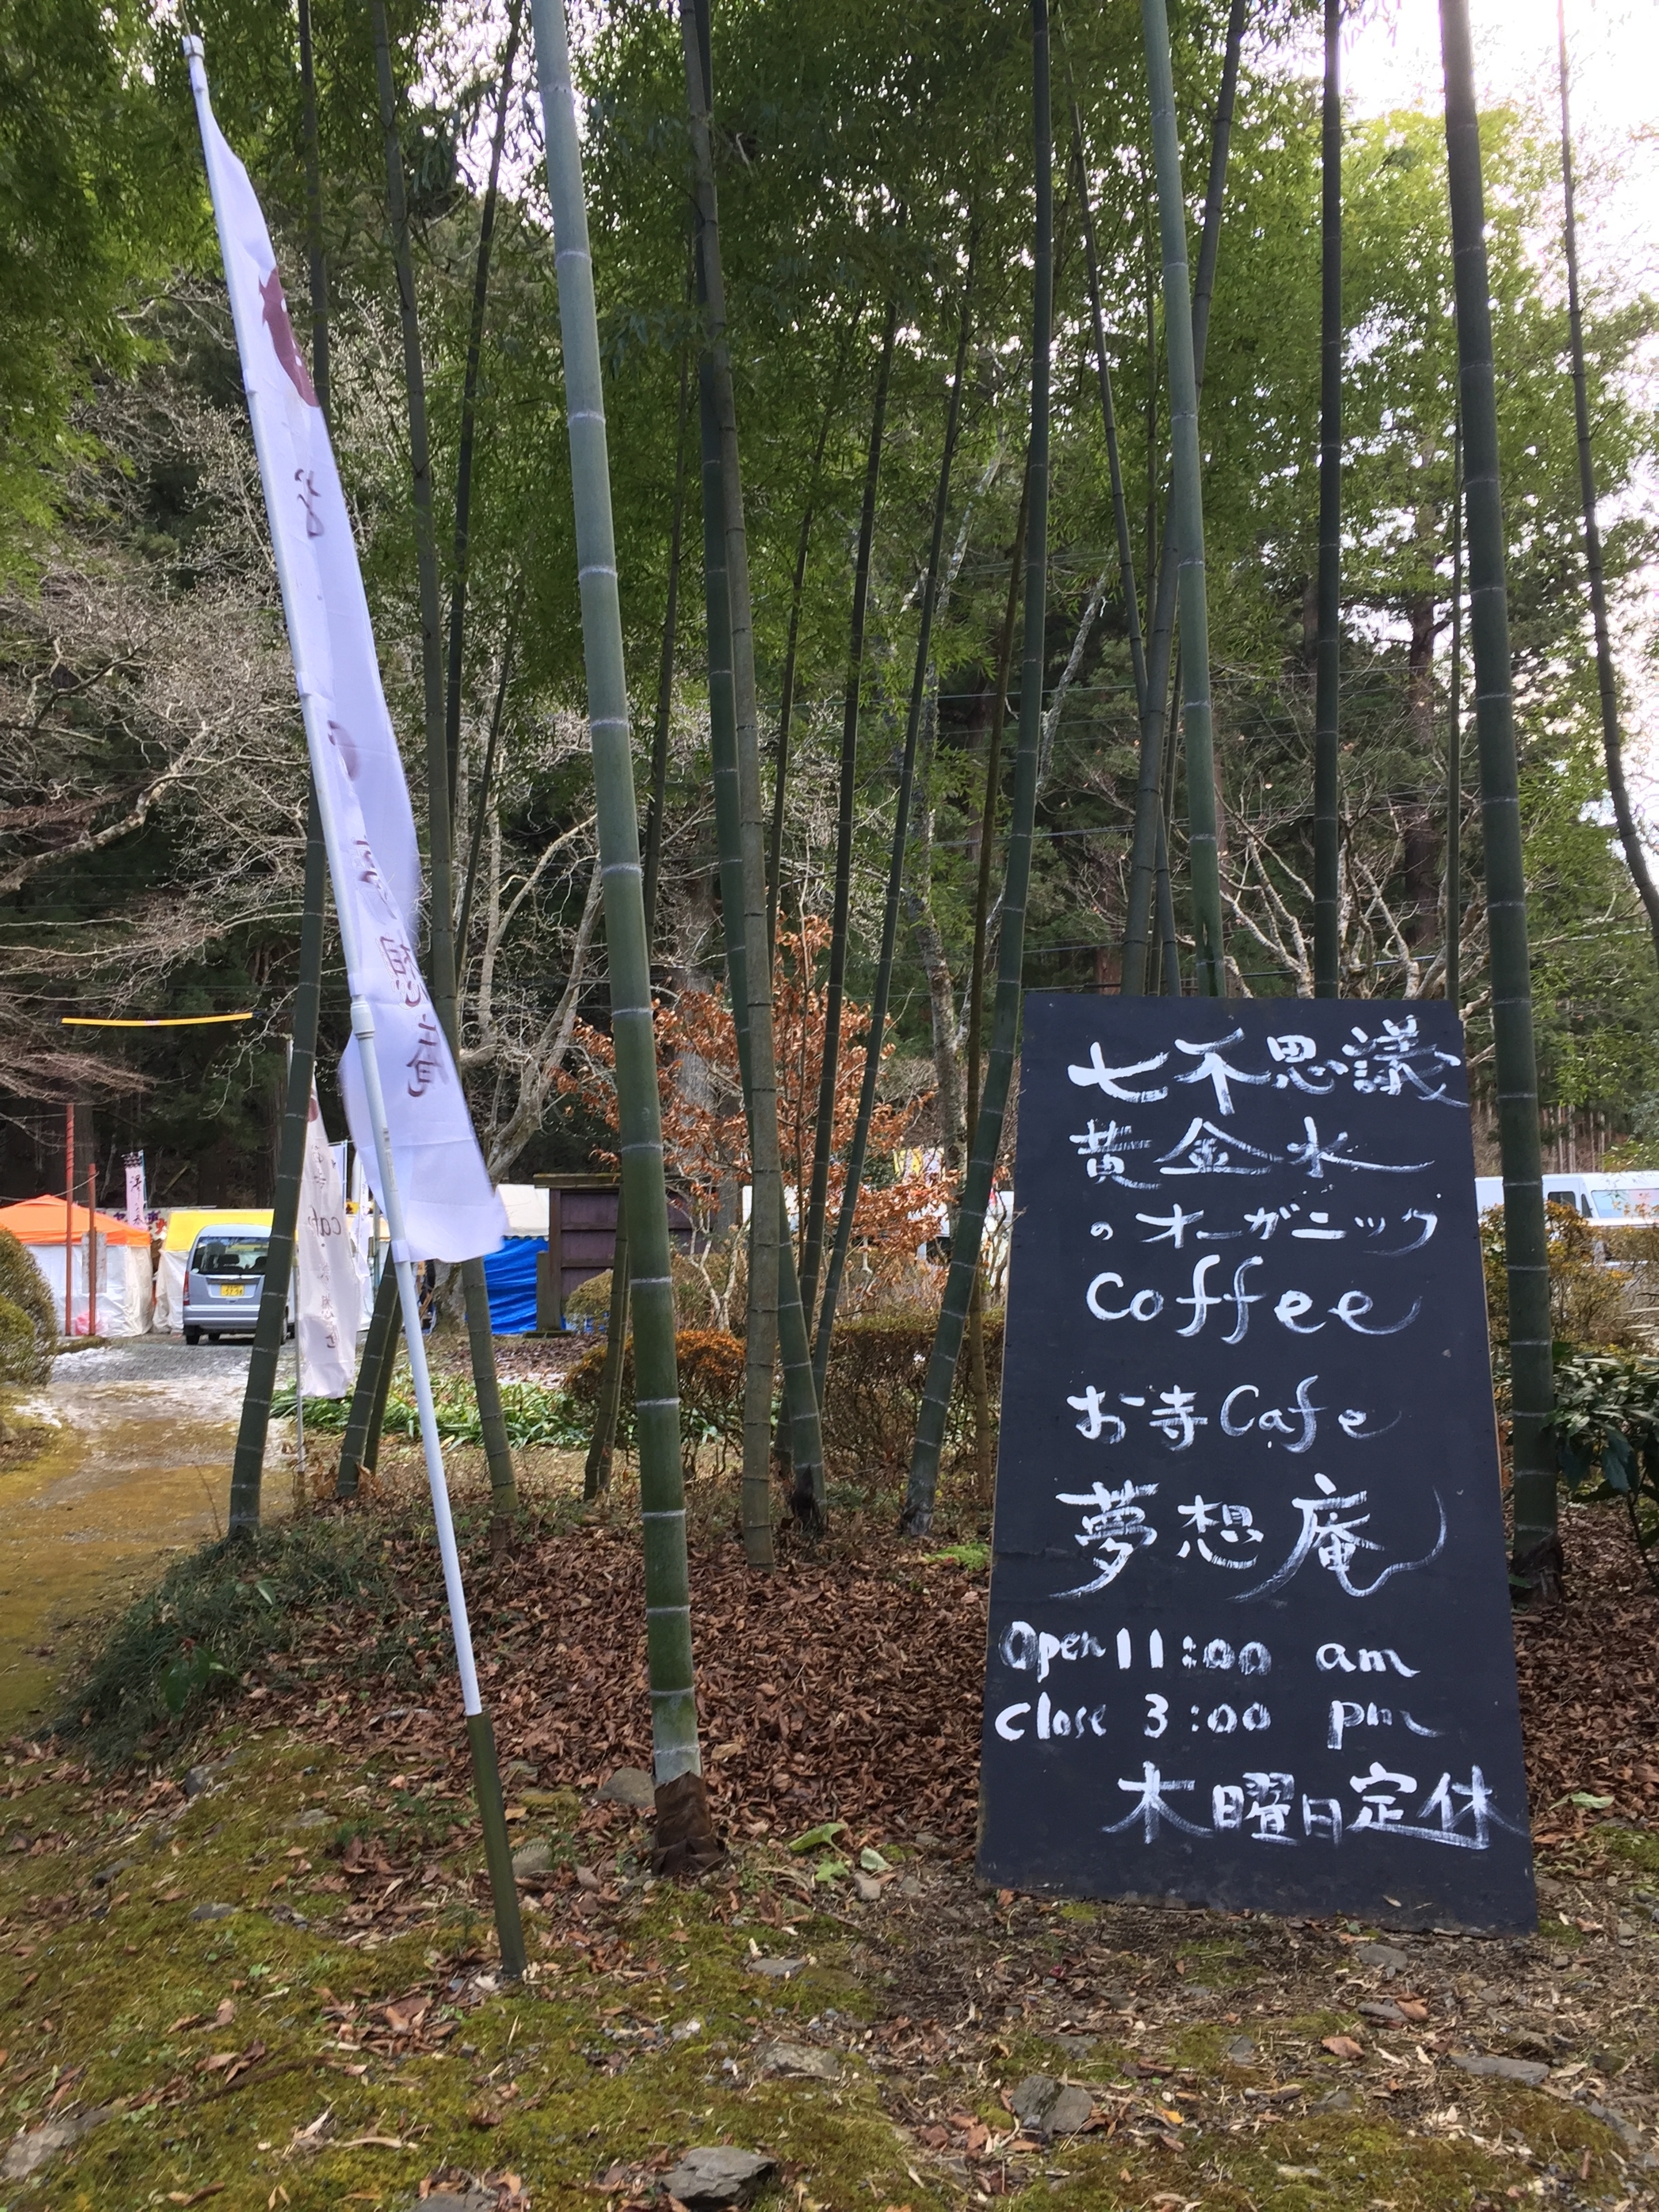 七不思議
黄金水
のオーガニック
Coffee
お寺Cafe
夢想庵
Open 11:00 am
Close 3:00 pm
木曜日定休
想庵
cafe